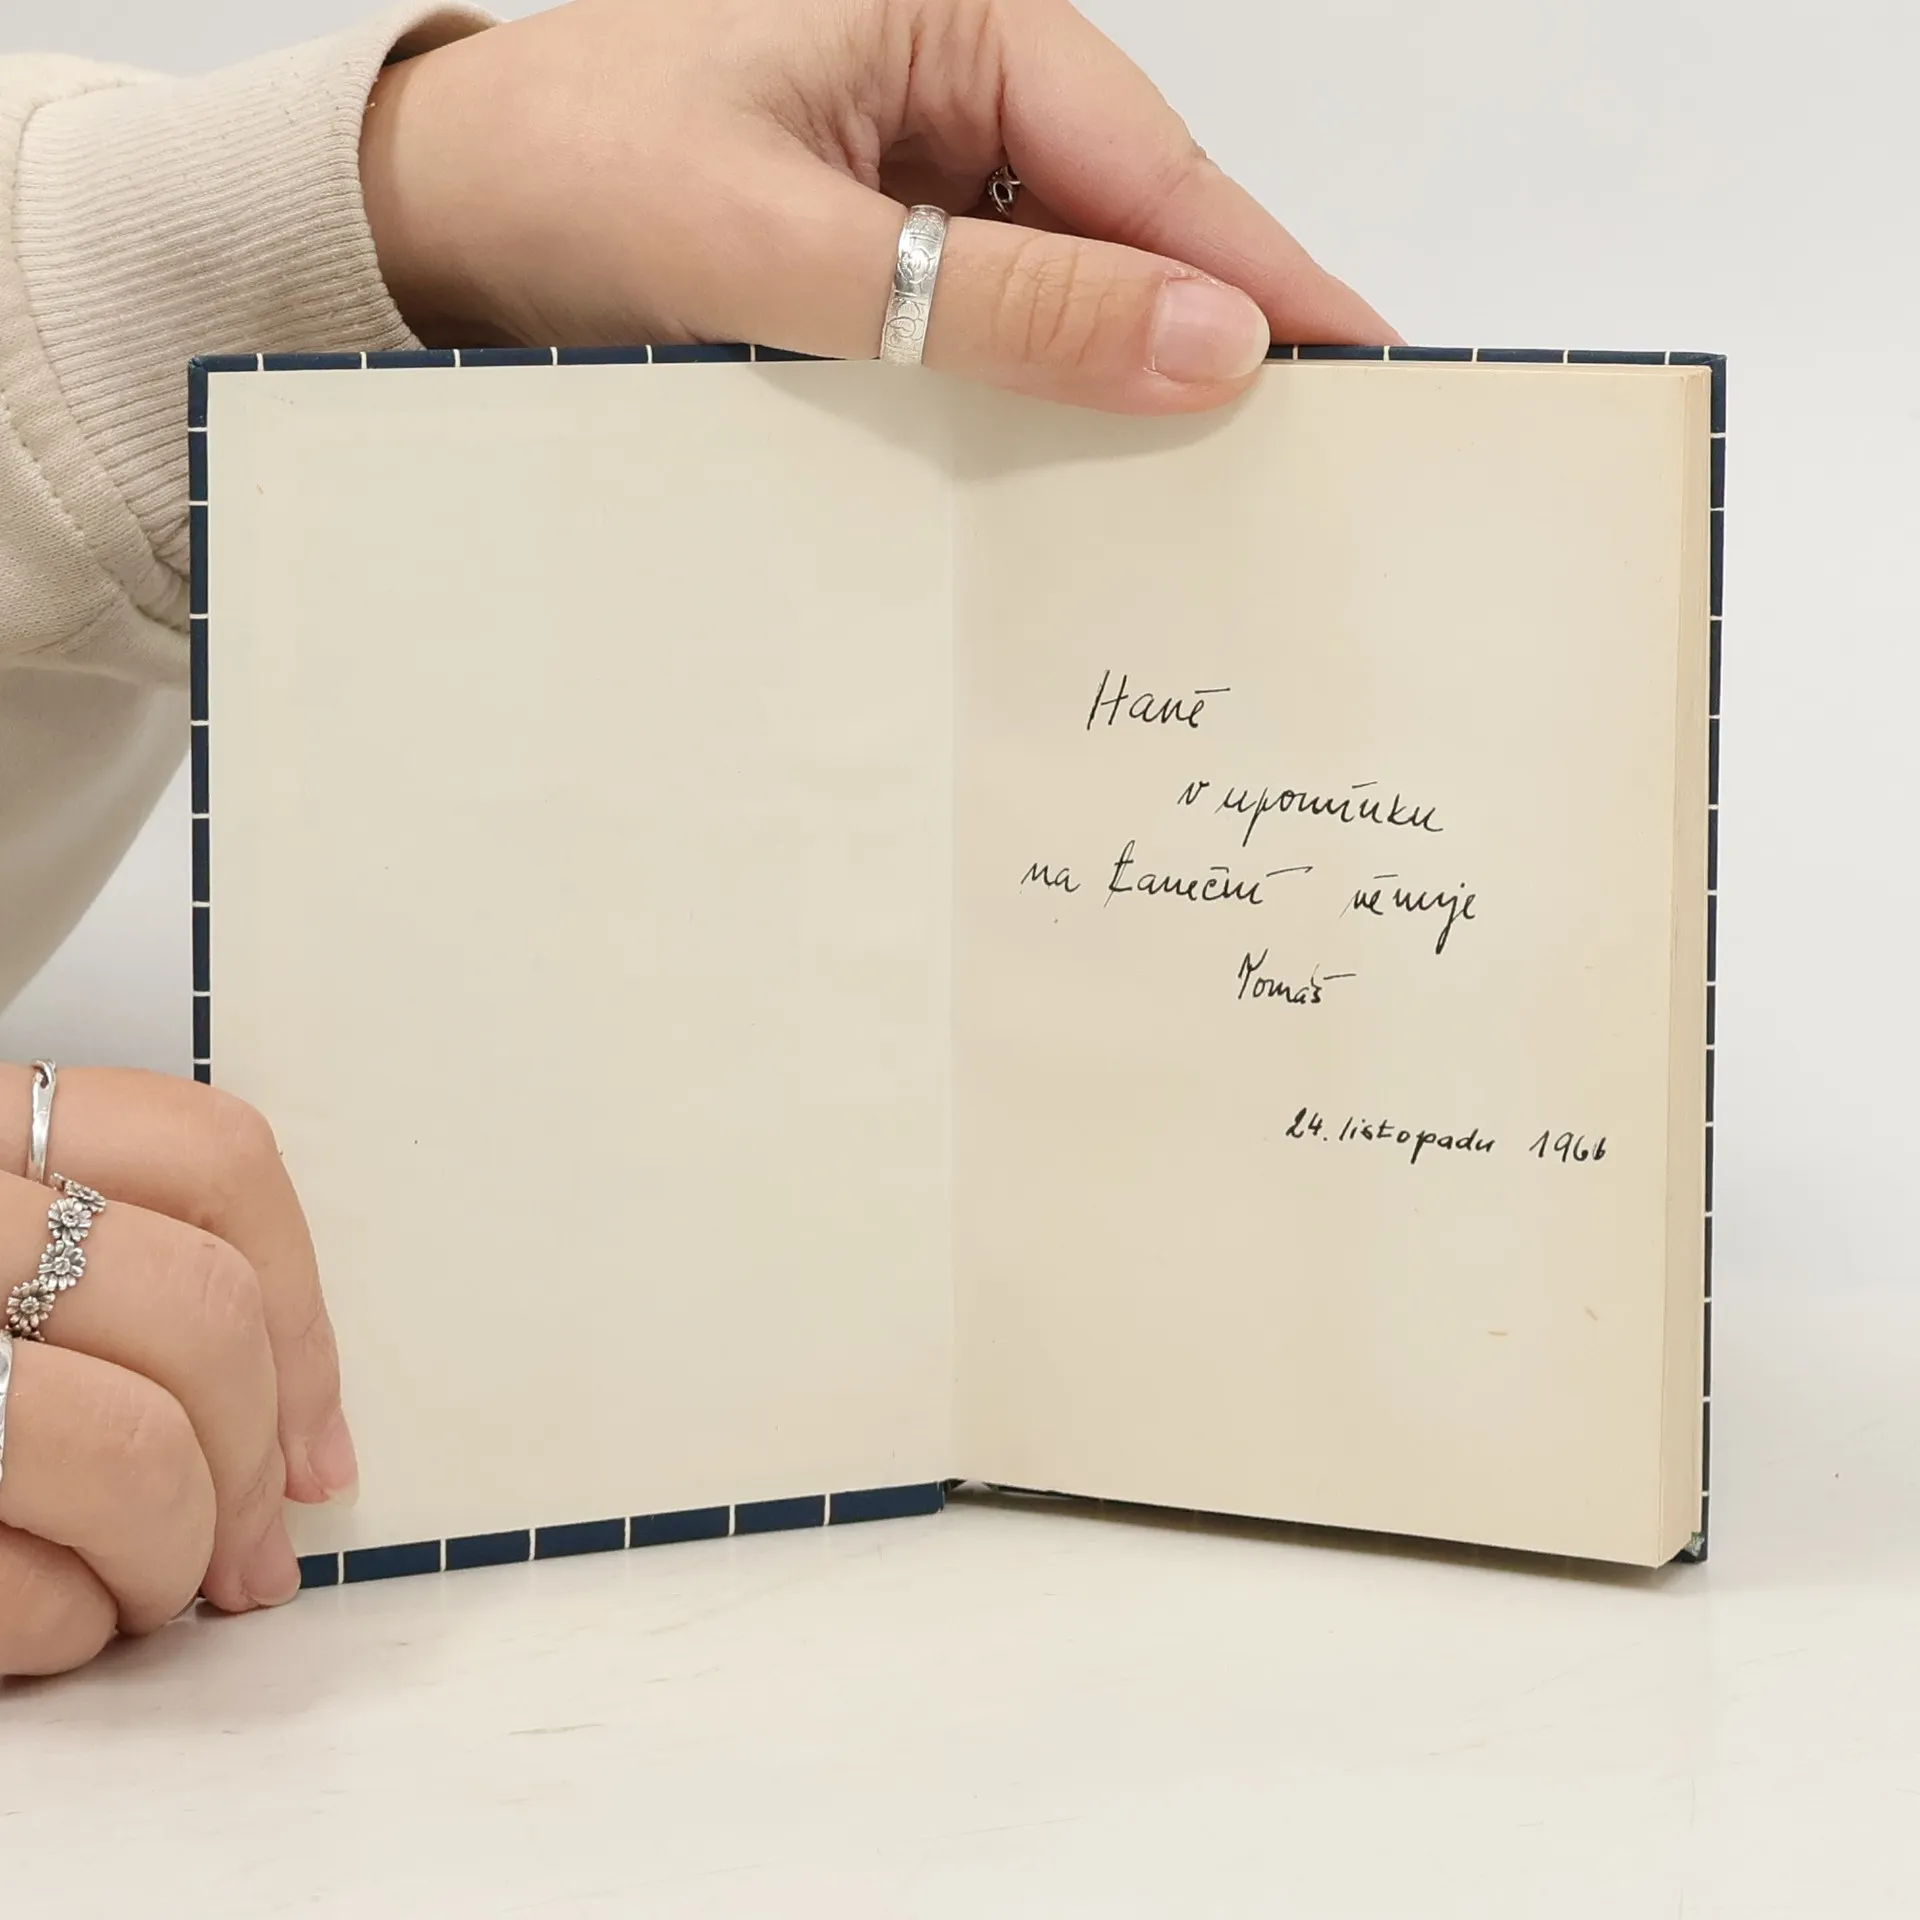 Haně
v upomínku
na taneční věnuje
Tomáš
24. listopadu 1966